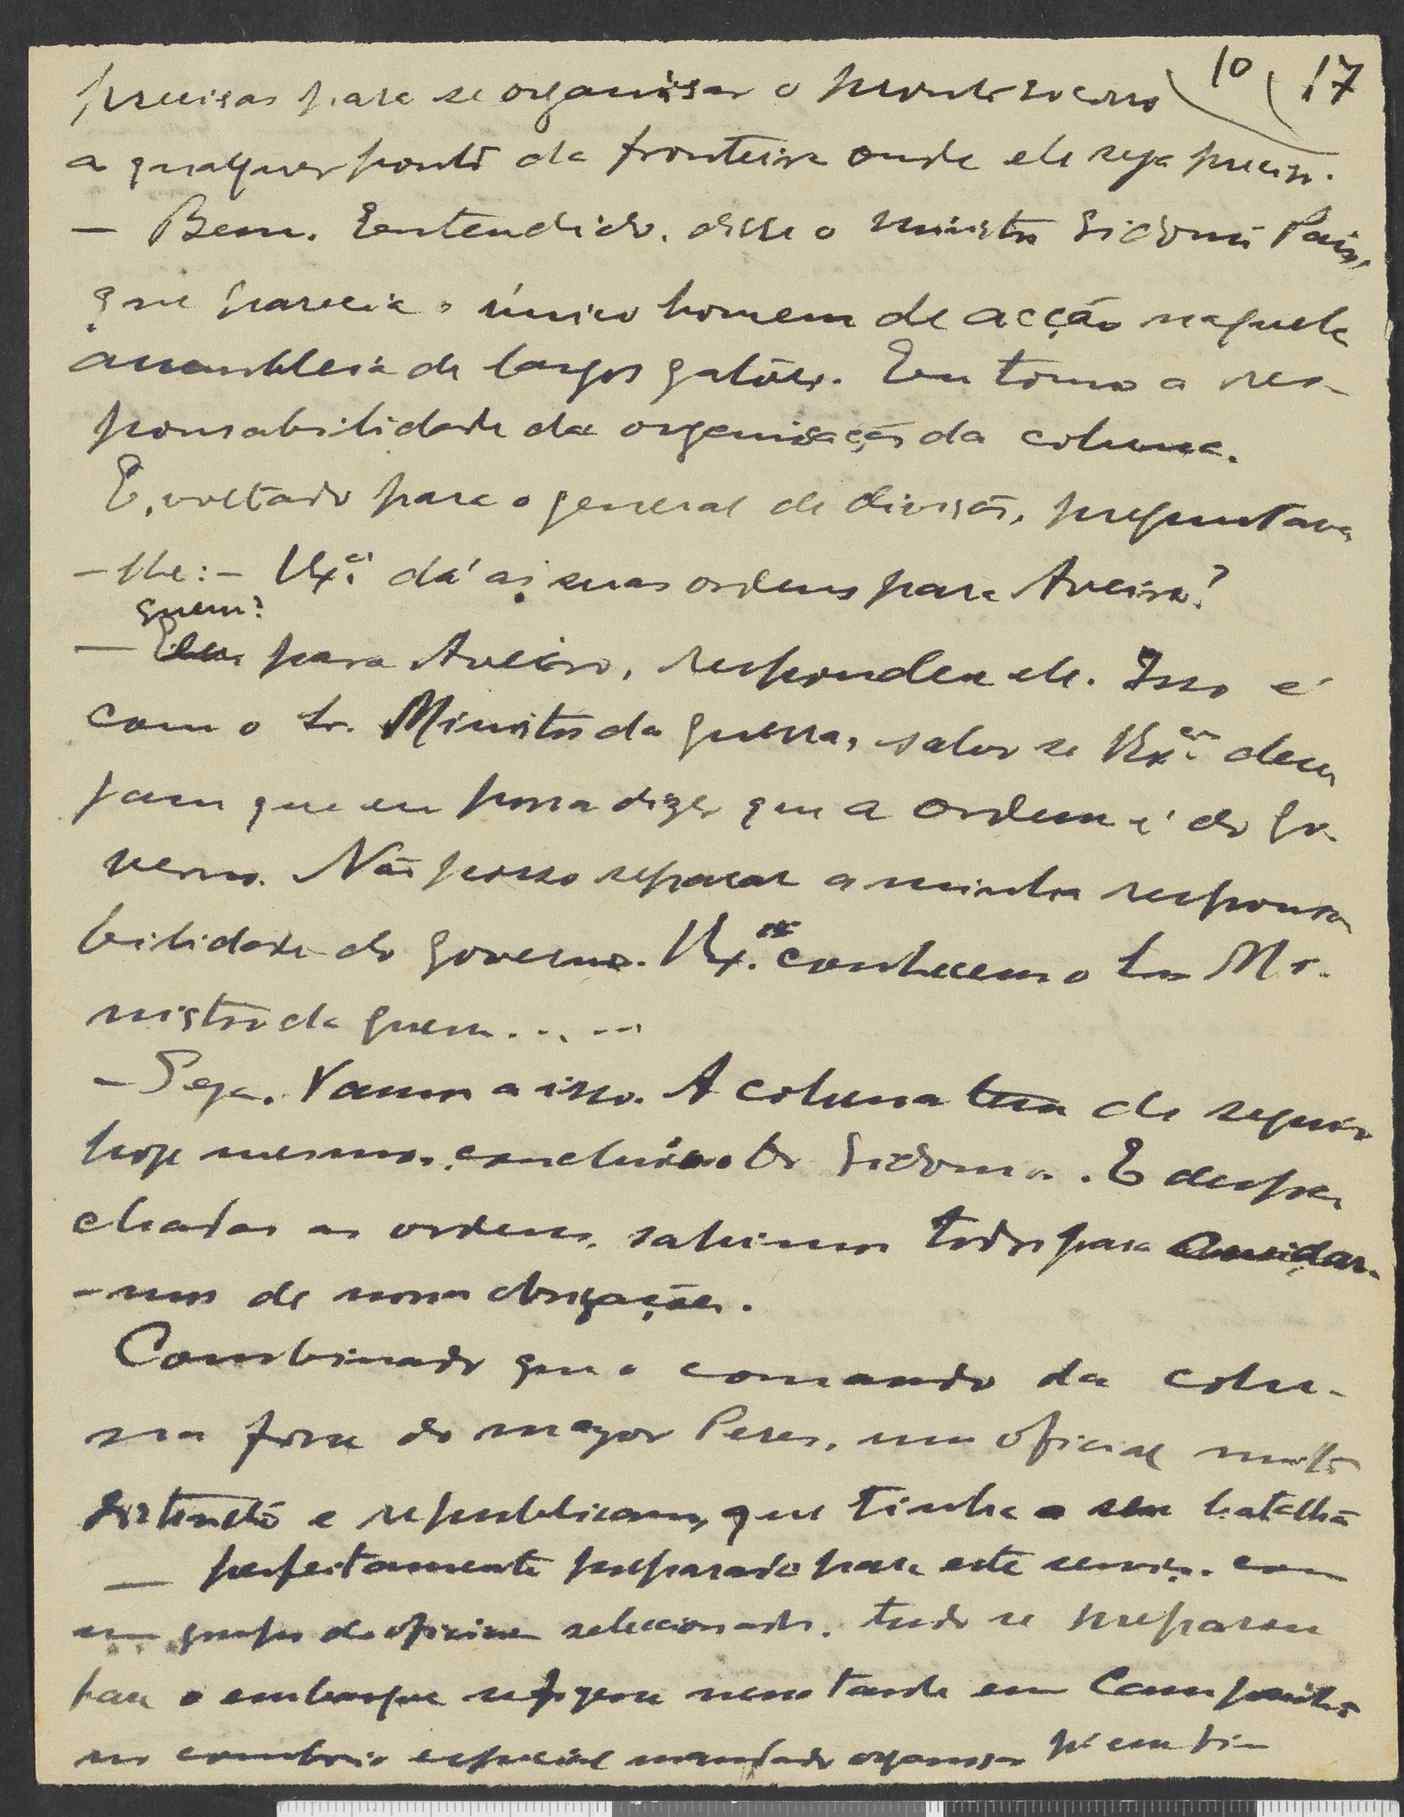 10 17
precisas para se organisar o pronto socorro
a qualquer ponto da fronteira onde ele seja preciso.
— Bem. Entendido, disse o ministro Sidonio Pais,
que parecia o único homem de acção naquela
assembleia de largos galões. Eu tomo a res-
ponsabilidade da organisação da coluna.
E, voltado para o general de divisão, preguntava
-lhe: — V. Ex.cia dá as suas ordens para Aveiro?
quem?
— Eu para Aveiro, respondeu ele. Isso é
com o Sr. Ministro da guerra, salvo se V. Ex.as dese
jam que eu possa dizer que a ordem é do Go-
verno. Não posso separar a minha responsa
bilidade do governo. V. Ex.as conhecem o Snr Mi-
nistro da guerra.....
— Seja. Vamos a isso. A coluna tem de seguir
hoje mesmo, concluiu o Dr Sidonio. E despa
chadas as ordens, sahimos todos para cuidar-
-mos de nossas obrigações.
Combinado que o comando da colu-
na fosse do major Peres, um oficial muito
distincto e republicano, que tinha o seu batalhão
— perfeitamente preparado para este serviço, com
um grupo de oficiaes seleccionado, tudo se preparou
para o embarque se fazer nessa tarde em Campanhã
no comboio especial mandado organisar